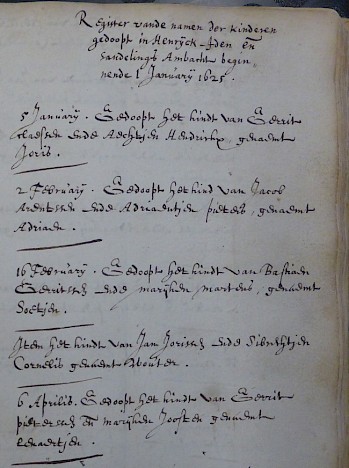 Register vande namen der kinderen
gedoopt in Henrijck-Iden en
Sandelings Ambacht begin-
nende 1 Januarij 1625.
5 Januarij. Gedoopt het kindt van Gerrit
Claessen ende Aechtjen Hendricx genaemt
Joris.
2 Februarij. Gedoopt het kind van Jacob
Arentssen ende Adriaentjen pieters, genaemt
Adriaen.
16 Februarij. Gedoopt het kindt van Bastiaen
Gerritssen ende marijken martens, genaemt
Soetjen.
Item het kindt van Jan Jorissen ende
Cornelis genaemt Wouter.
6 Aprilis. Gedoopt het kindt van Gerrit
pieterssen en marijken Joosten genaemt
Lenaertjen.